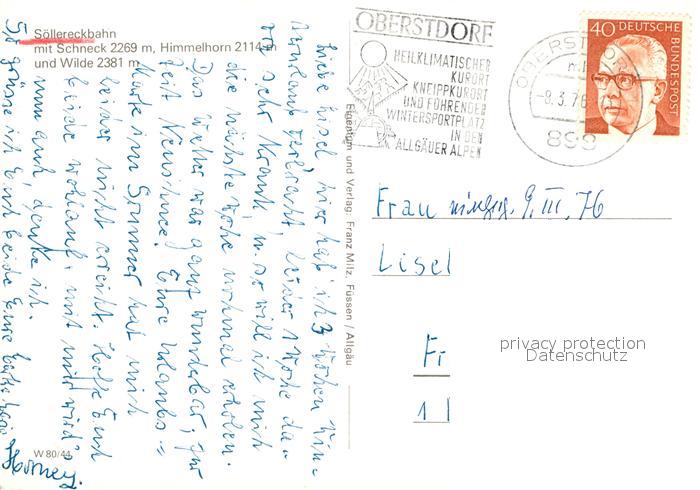 Söllereckbahn
mit Schneck 2269 m, Himmelhorn 2114 m
und Wilde 2381 m
OBERSTDORF
HEILKLIMATISCHER
KURORT
KNEIPPKURORT
UND FÜHRENDER
WINTERSPORTPLATZ
IN DEN
ALLGÄUER ALPEN
OBERSTDORF
-8.3.76
898
40 DEUTSCHE
BUNDESPOST
Liebe Lisel, hier hab' ich 3 Wochen
verbracht. Leider 1 Woche da-
von sehr krank u. so will ich mich
die nächste Woche nochmal erholen.
Das Wetter war ganz wunderbar, zur
Zeit Neuschnee. Eure Urlaubs-
karte im Sommer hat mich
leider nicht erreicht. Hoffe Euch
beide wohlauf, mit
nun auch, denke ich.
So grüsse ich Euch beide Eure
Eigentum und Verlag: Franz Milz, Füssen / Allgäu
Frau 9. III. 76
Lisel
Fi
1
privacy protection
Datenschutz
W 80/44